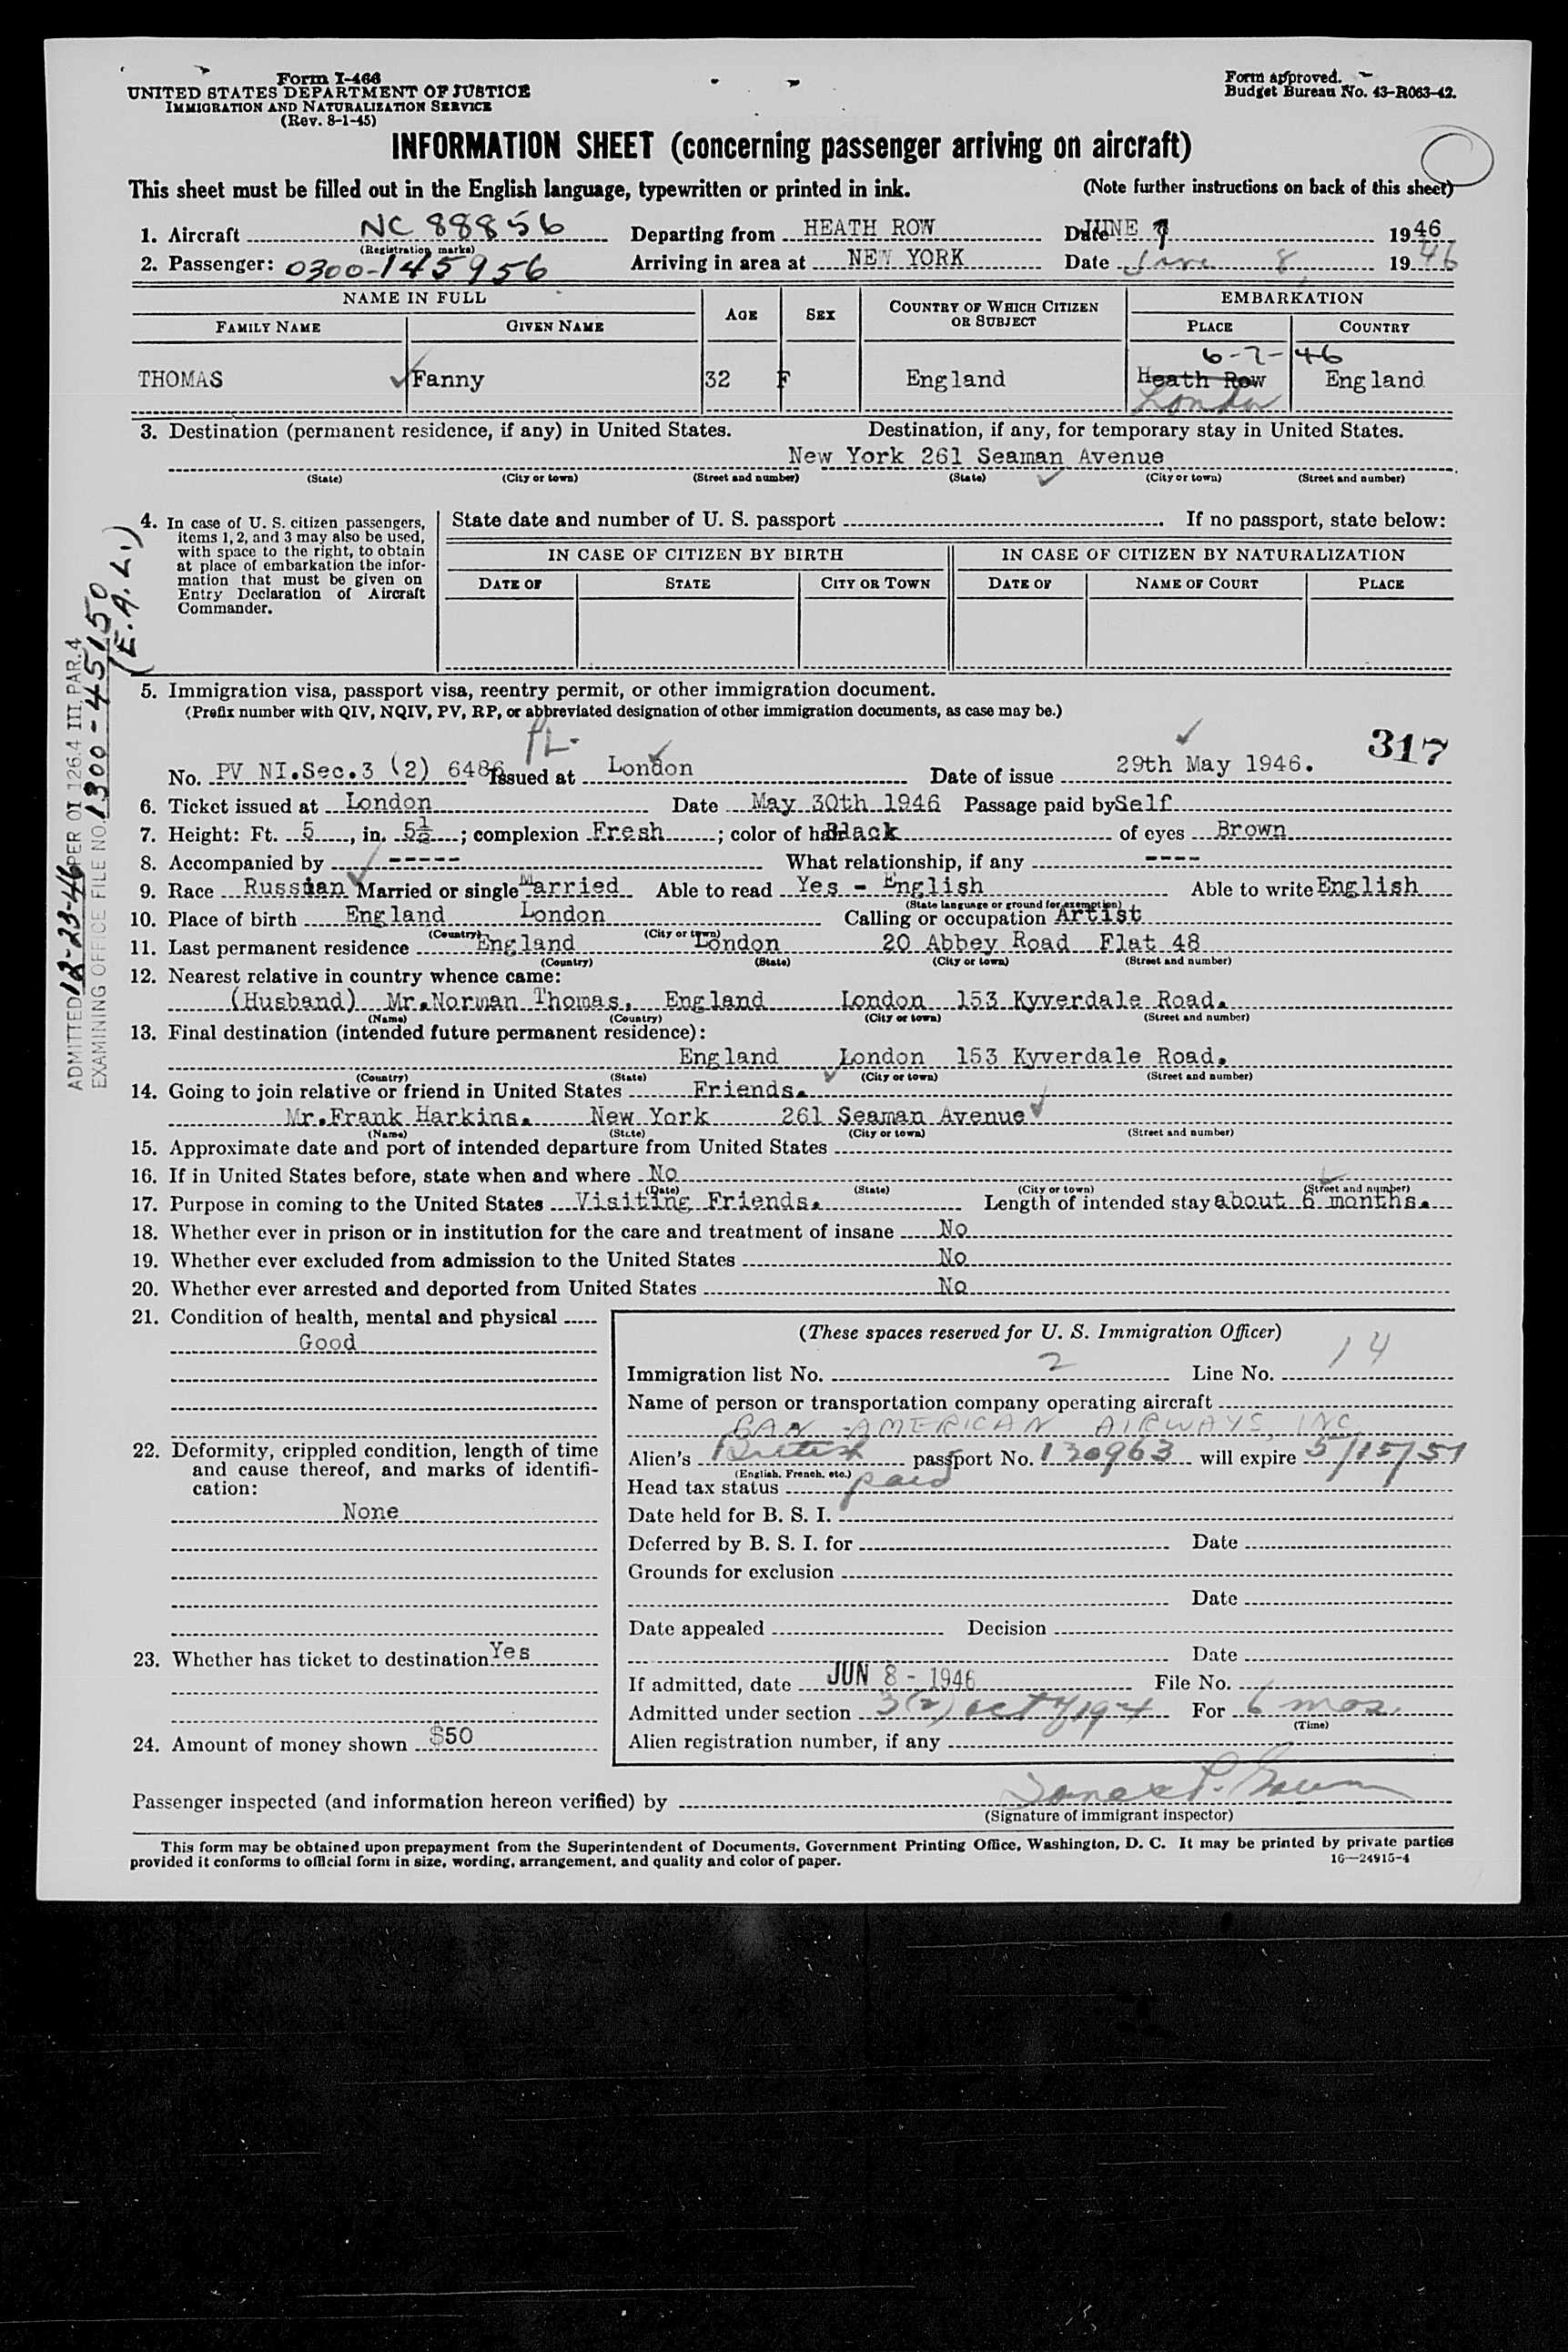 Form I-466
UNITED STATES DEPARTMENT OF JUSTICE
IMMIGRATION AND NATURALIZATION SERVICE
(Rev. 8-1-45)
Form approved.
Budget Bureau No. 43-R063-42.
INFORMATION SHEET (concerning passenger arriving on aircraft)
This sheet must be filled out in the English language, typewritten or printed in ink. (Note further instructions on back of this sheet)
1. Aircraft NC 88856 Departing from HEATH ROW Date JUNE 7 1946
(Registration marks)
2. Passenger: 0300-145956 Arriving in area at NEW YORK Date June 8, 1946
NAME IN FULL AGE SEX COUNTRY OF WHICH CITIZEN OR SUBJECT EMBARKATION
FAMILY NAME GIVEN NAME PLACE COUNTRY
6-7-46
THOMAS Fanny 32 F England Heath Row England
London
3. Destination (permanent residence, if any) in United States. Destination, if any, for temporary stay in United States.
New York 261 Seaman Avenue
(State) (City or town) (Street and number) (State) (City or town) (Street and number)
4. In case of U. S. citizen passengers, items 1, 2, and 3 may also be used, with space to the right, to obtain at place of embarkation the information that must be given on Entry Declaration of Aircraft Commander.
State date and number of U. S. passport If no passport, state below:
IN CASE OF CITIZEN BY BIRTH IN CASE OF CITIZEN BY NATURALIZATION
DATE OF STATE CITY OR TOWN DATE OF NAME OF COURT PLACE
ADMITTED 12-23-46 PER OI 126.4 III, PAR. 4
EXAMINING OFFICE FILE NO. 1300-45150
(E.A.L.)
5. Immigration visa, passport visa, reentry permit, or other immigration document.
(Prefix number with QIV, NQIV, PV, RP, or abbreviated designation of other immigration documents, as case may be.)
317
No. PV NI.Sec.3 (2) 6486 Issued at London Date of issue 29th May 1946.
6. Ticket issued at London Date May 30th 1946 Passage paid by Self
7. Height: Ft. 5, in. 5½; complexion Fresh; color of hair Black of eyes Brown
8. Accompanied by ----- What relationship, if any ----
9. Race Russian Married or single Married Able to read Yes - English Able to write English
(State language or ground for exemption)
10. Place of birth England London Calling or occupation Artist
(Country) (City or town)
11. Last permanent residence England London 20 Abbey Road Flat 48
(Country) (State) (City or town) (Street and number)
12. Nearest relative in country whence came:
(Husband) Mr.Norman Thomas, England London 153 Kyverdale Road.
(Name) (Country) (City or town) (Street and number)
13. Final destination (intended future permanent residence):
England London 153 Kyverdale Road.
(Country) (State) (City or town) (Street and number)
14. Going to join relative or friend in United States Friends.
Mr.Frank Harkins. New York 261 Seaman Avenue
(Name) (State) (City or town) (Street and number)
15. Approximate date and port of intended departure from United States
16. If in United States before, state when and where No
(Date) (State) (City or town) (Street and number)
17. Purpose in coming to the United States Visiting Friends. Length of intended stay about 6 months.
18. Whether ever in prison or in institution for the care and treatment of insane No
19. Whether ever excluded from admission to the United States No
20. Whether ever arrested and deported from United States No
21. Condition of health, mental and physical
Good
22. Deformity, crippled condition, length of time and cause thereof, and marks of identification:
None
23. Whether has ticket to destination Yes
24. Amount of money shown $50
(These spaces reserved for U. S. Immigration Officer)
Immigration list No. 2 Line No. 14
Name of person or transportation company operating aircraft
PAN AMERICAN AIRWAYS, INC
Alien's British passport No. 130963 will expire 5/15/51
(English, French, etc.)
Head tax status paid
Date held for B. S. I.
Deferred by B. S. I. for Date
Grounds for exclusion
Date
Date appealed Decision
Date
If admitted, date JUN 8 - 1946 File No.
Admitted under section 3(2) act of 1924 For 6 mos.
(Time)
Alien registration number, if any
Passenger inspected (and information hereon verified) by
(Signature of immigrant inspector)
This form may be obtained upon prepayment from the Superintendent of Documents, Government Printing Office, Washington, D. C. It may be printed by private parties
provided it conforms to official form in size, wording, arrangement, and quality and color of paper. 16—24915-4